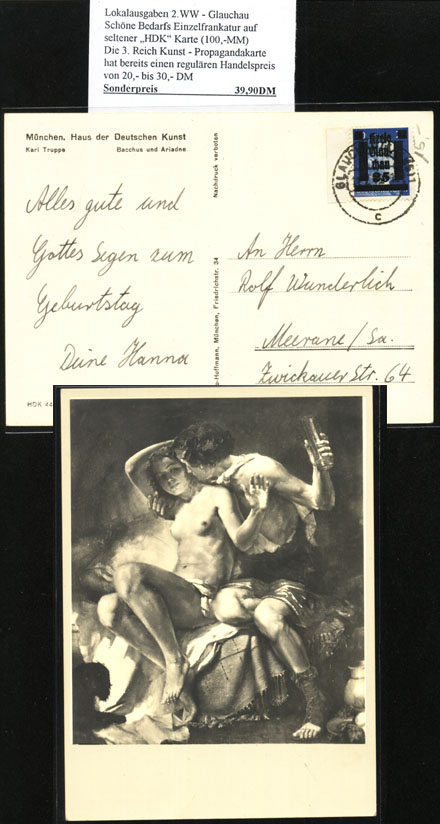 Lokalausgaben 2.WW - Glauchau
Schöne Bedarfs Einzelfrankatur auf
seltener „HDK“ Karte (100,-MM)
Die 3. Reich Kunst - Propagandakarte
hat bereits einen regulären Handelspreis
von 20,- bis 30,- DM
Sonderpreis 39,90DM
München. Haus der Deutschen Kunst
Karl Truppe Bacchus und Ariadne
Alles gute und
Gottes Segen zum
Geburtstag
Deine Hanna
HDK 44
Nachdruck verboten
o-Hoffmann, München, Friedrichstr. 34
GLAUC
c
85
15,-
An Herrn
Rolf Wunderlich
Meerane/Sa.
Zwickauer Str. 64